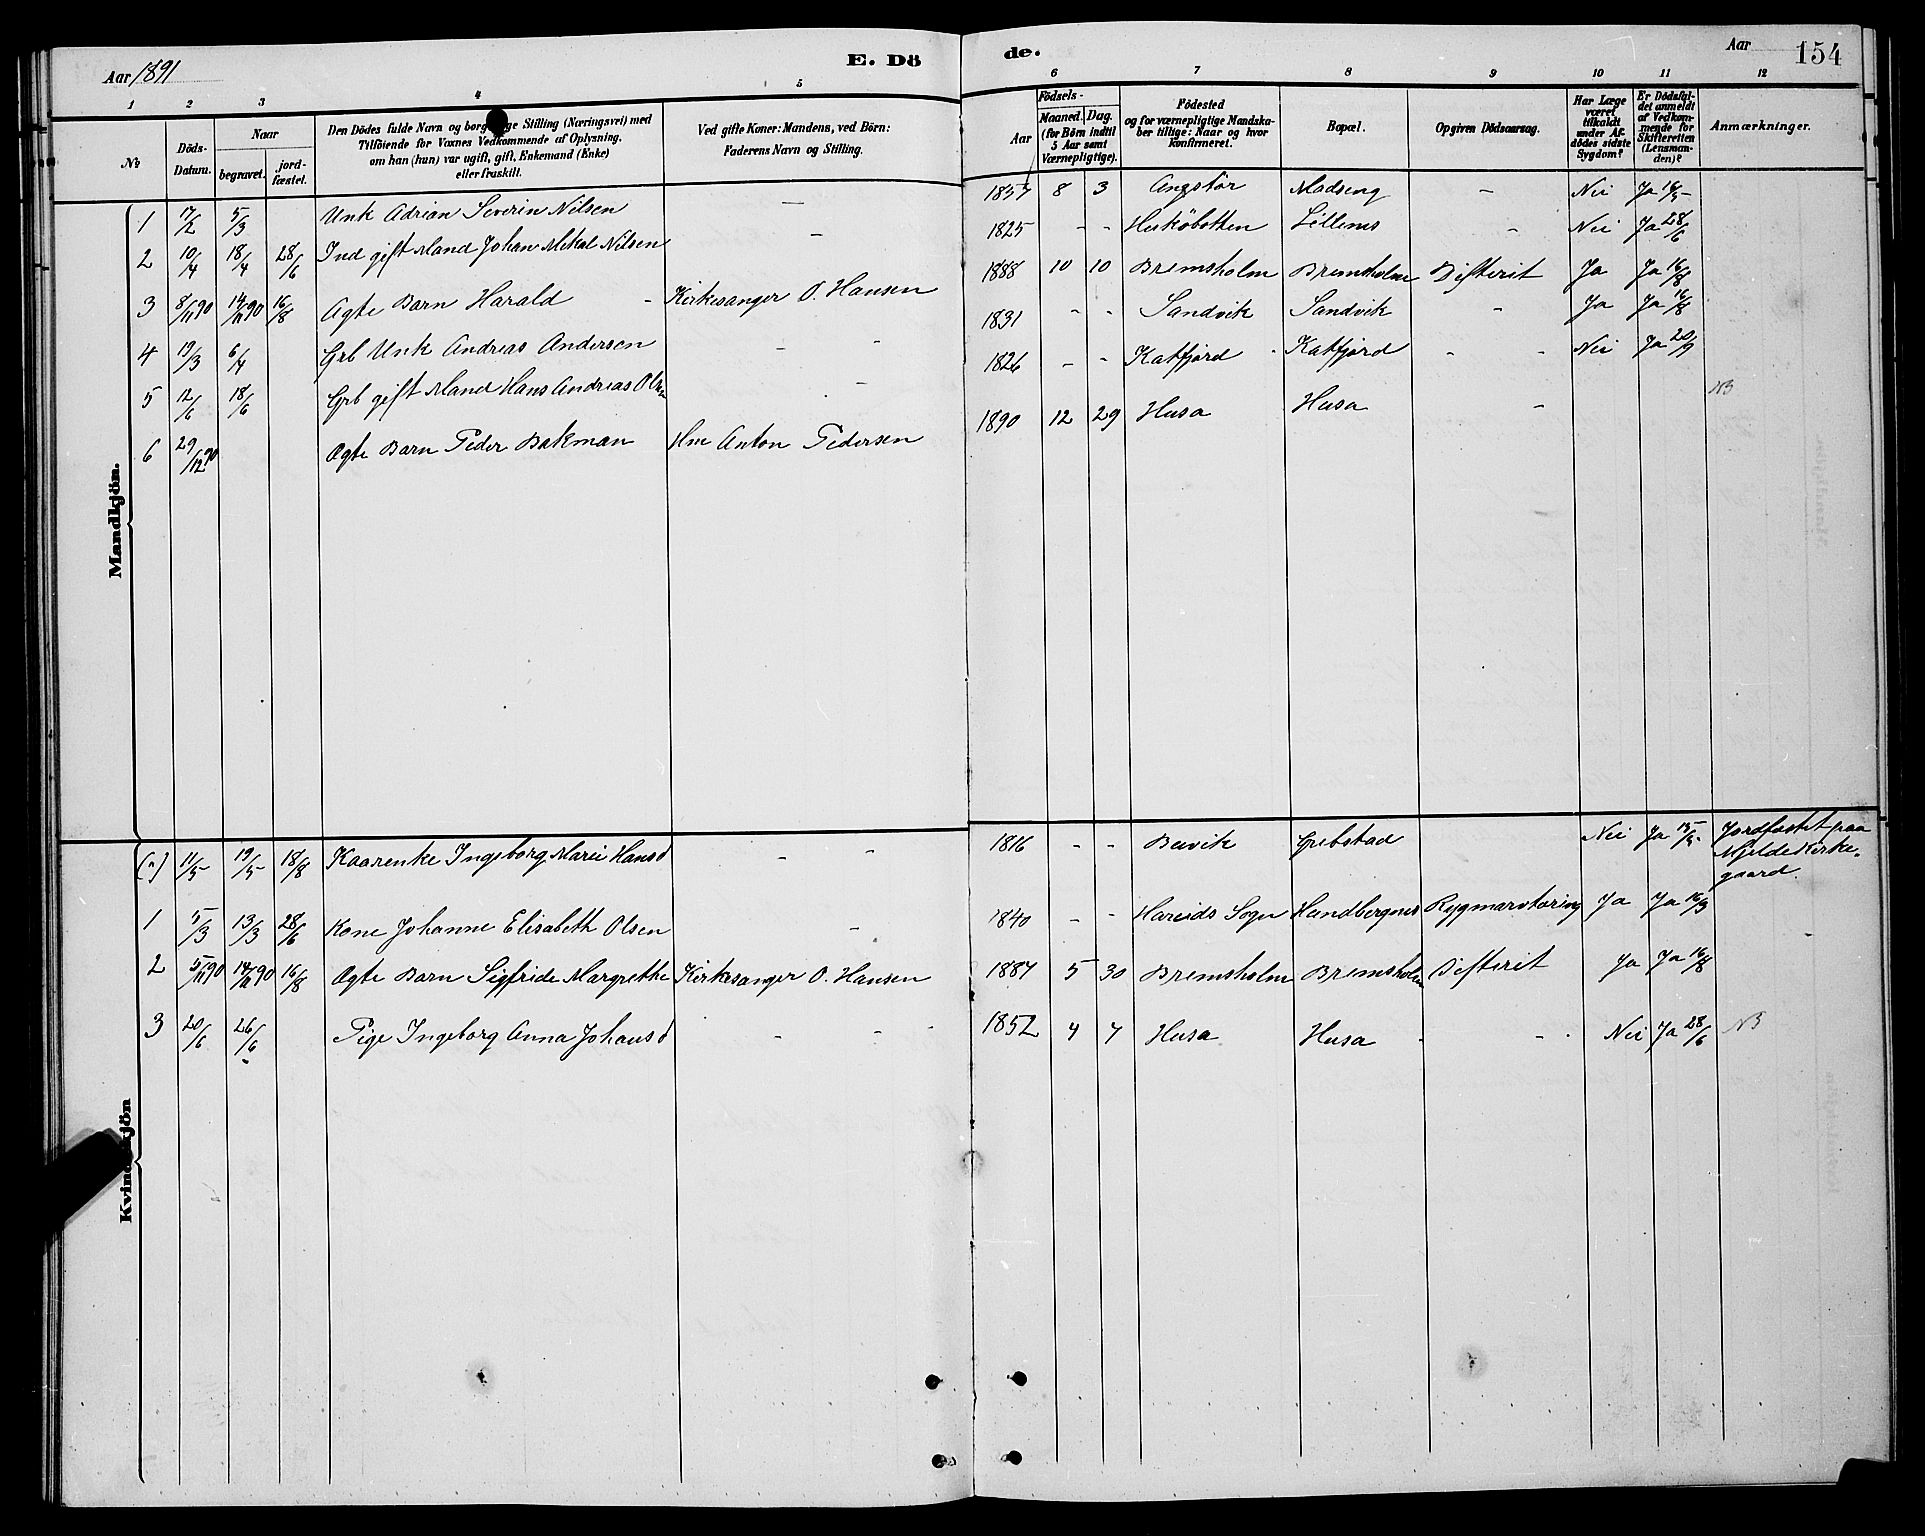 Aar 1891
E. Dö
de.
Aar
154
1 2 3 4 5 6 7 8 9 10 11 12
№
Döds-
Datum.
Naar
begravet.
jord-
fæstet.
Den Dödes fulde Navn og borgerlige Stilling (Næringsvei) med
Tilföiende for Voxnes Vedkommende af Oplysning,
om han (hun) var ugift, gift, Enkemand (Enke)
eller fraskilt.
Ved gifte Koner: Mandens, ved Börn:
Faderens Navn og Stilling.
Födsels-
Aar
Maaned.
Dag.
(for Börn indtil
5 Aar samt
Værnepligtige).
Födested
og for værnepligtige Mandska-
ber tillige: Naar og hvor
konfirmeret.
Bopæl.
Opgiven Dödsaarsag.
Har Læge
været
tilkaldt
under Af-
dödes sidste
Sygdom?
Er Dödsfal-
det anmeldt
af Vedkom-
mende for
Skifteretten
(Lensman-
den)?
Anmærkninger.
Mandkjön.
1 17/2 5/3 Unk Adrian Severin Nilsen — 1857 8 3 Angstör Madseng - Nei Ja 16/5
2 10/4 18/4 28/6 Ind gift Mand Johan Mikal Nilsen - 1825 - - Lillenes - Nei Ja 28/6
3 8/11 90 14/11 90 16/8 Ægte Barn Harald - Kirkesanger O. Hansen 1888 10 10 Bremsholm Bremsholm Difterit Ja Ja 16/8
4 19/3 6/4 Grb Unk Andreas Andersen - - 1831 - - Sandvik Sandvik - Ja Ja 16/8
5 12/6 18/6 Grb gift Mand Hans Andreas Olsen - 1826 - - Katfjord - Katfjord - - Nei Ja 20/9
6 29/12 90 Ægte Barn Peder Bakman Hm Anton Pedersen 1890 12 29 Husa Husa - NB
Kvindekjön
(") 11/5 19/5 18/8 Kaarenke Ingeborg Marie Hansd - - 1816 - - Buvik Grebstad Nei Ja 15/5 Jordfæstet paa
Mjelde Kirke-
gaard.
1 5/3 13/3 28/6 Kone Johanne Elisabeth Olsen - 1840 - - Hareids Sogn Hundbergnes Rygmarvtæring Ja Ja 16/3
2 5/11 90 14/11 90 16/8 Ægte Barn Sigfride Margrethe Kirkesanger O. Hansen 1887 5 30 Bremsholm Bremsholm Difterit Ja Ja 16/8
3 20/6 26/6 Pige Ingeborg Anna Johansd - - 1852 4 7 Husa Husa - - Nei Ja 28/6 NB